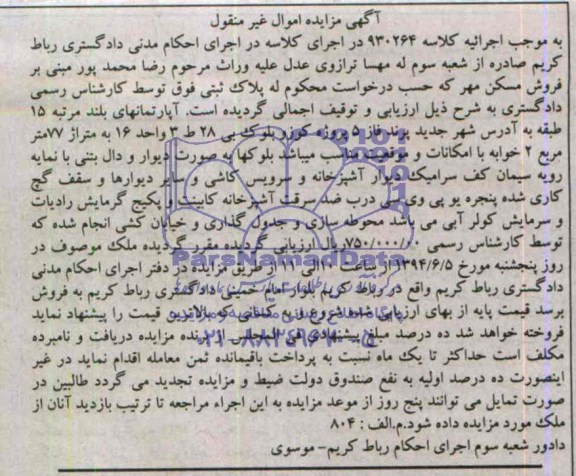 آگهی مزایده اموال غیر منقول
به موجب اجرائیه کلاسه ۹۳۰۲۶۴ در اجرای کلاسه در اجرای احکام مدنی دادگستری رباط
کریم صادره از شعبه سوم له مهسا ترازوی عدل علیه وراث مرحوم رضا محمد پور مبنی بر
فروش مسکن مهر که حسب درخواست محکوم له پلاک ثبتی فوق توسط کارشناس رسمی
دادگستری به شرح ذیل ارزیابی و توقیف اجمالی گردیده است. آپارتمانهای بلند مرتبه ۱۵
طبقه به آدرس شهر جدید پرند فاز ۵ پروژه کوزو بلوک بی ۲۸ ط ۳ واحد ۱۶ به متراژ ۷۷متر
مربع ۲ خوابه با امکانات و موقعیت مناسب میباشد بلوکها به صورت دیوار و دال بتنی با نمایه
رویه سیمان کف سرامیک دیوار آشپزخانه و سرویس کاشی و سایر دیوارها و سقف گچ
کاری شده پنجره یو پی وی سی درب ضد سرقت آشپزخانه کابینت و پکیج گرمایش رادیات
و سرمایش کولر آبی می باشد محوطه سازی و جدول گذاری و خیابان کشی انجام شده که
توسط کارشناس رسمی ریال ارزیابی گردیده مقرر گردیده ملک موصوف در
روز پنجشنبه مورخ ۱۳۹۴/۶/۵ از ساعت ۱۰الی ۱۱ از طریق مزایده در دفتر اجرای احکام مدنی
دادگستری رباط کریم واقع در رباط کریم بلوار امام خمینی دادگستری رباط کریم به فروش
برسد قیمت پایه از بهای ارزیابی شده شروع و به کسانی که بالاترین قیمت را پیشنهاد نماید
فروخته خواهد شد ده درصد مبلغ پیشنهادی از برنده مزایده دریافت و نامبرده
مکلف است حداکثر تا یک ماه نسبت به پرداخت باقیمانده ثمن معامله اقدام نماید در غیر
اینصورت ده درصد اولیه به نفع صندوق دولت ضبط و مزایده تجدید می گردد طالبین در
صورت تمایل می توانند پنج روز از موعد مزایده به این اجراء مراجعه تا ترتیب بازدید آنان از
ملک مورد مزایده داده شود.م.الف : ۸۰۴
دادور شعبه سوم اجرای احکام رباط کریم- موسوی
ParsNamadData